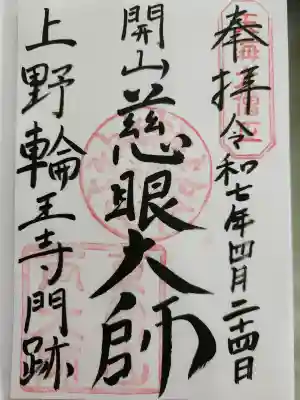 奉拝 令和七年四月二十四日
開山慈眼大師
上野輪王寺門跡